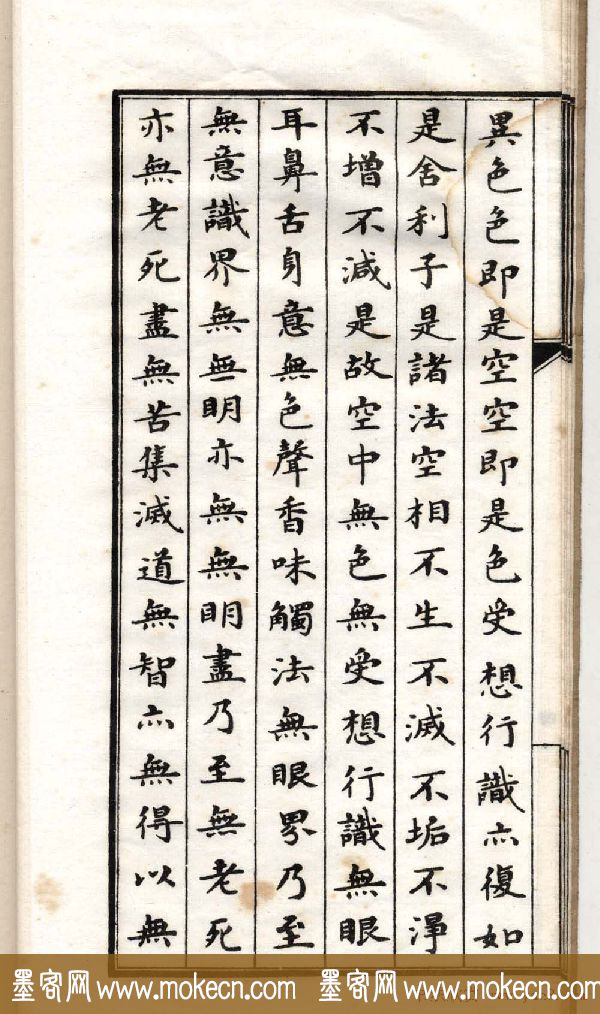 異色色即是空空即是色受想行識亦復如
是舍利子是諸法空相不生不滅不垢不淨
不增不減是故空中無色無受想行識無眼
耳鼻舌身意無色聲香味觸法無眼界乃至
無意識界無無明亦無無明盡乃至無老死
亦無老死盡無苦集滅道無智亦無得以無
墨客网 www.mokecn.com 墨客网 www.mokecn.com